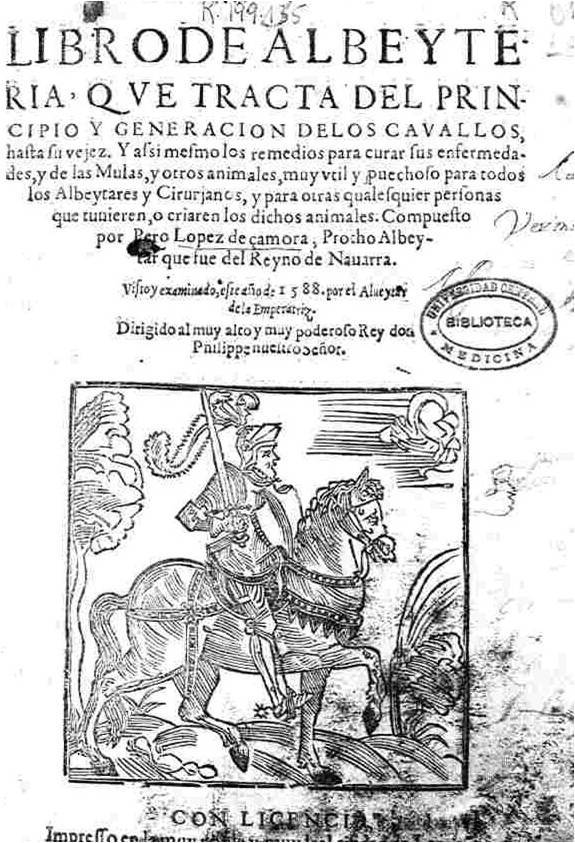 R. 199.135
R
LIBRO DE ALBEYTE-
RIA, QVE TRACTA DEL PRIN-
CIPIO Y GENERACION DELOS CAVALLOS,
hasta su vejez. Y assi mesmo los remedios para curar sus enfermeda-
des, y de las Mulas, y otros animales, muy vtil y puechoso para todos
los Albeytares y Cirurjanos, y para otras qualesquier personas
que tuuieren, o criaren los dichos animales. Compuesto
por Pero Lopez de çamora, Protho Albey-
tar que fue del Reyno de Nauarra.
Visto y examinado, este año de 1588. por el Alueytar
de la Emperatriz.
Dirigido al muy alto y muy poderoso Rey don
Philippe nuestro señor.
UNIVERSIDAD CENTRAL
BIBLIOTECA
MEDICINA
CON LICENCIA
Impresso en la muy noble y muy leal